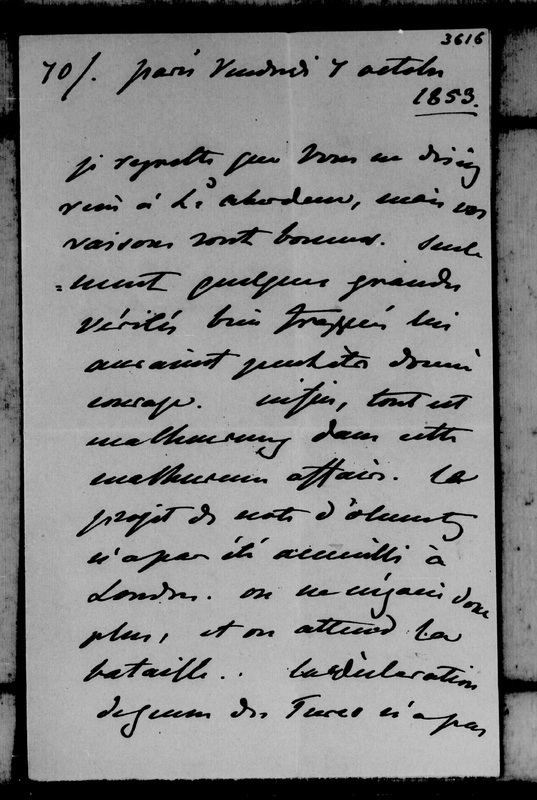 3616
70/. paris Vendredi 7 octobre
1853.
je regrette que Vous ne disiez
rien à Ld aberdeen, mais vos
raisons sont bonnes. seule
=ment quelques grandes
vérités bien frappées lui
auraient peutêtre donné
courage. enfin, tout est
malheureux dans cette
malheureuse affaire. le
projet de note d'olmutz
n'a pas été accueilli à
Londres. on ne négocie donc
plus, et on attend la
bataille.. la déclaration
de guerre des Turcs n'a pas